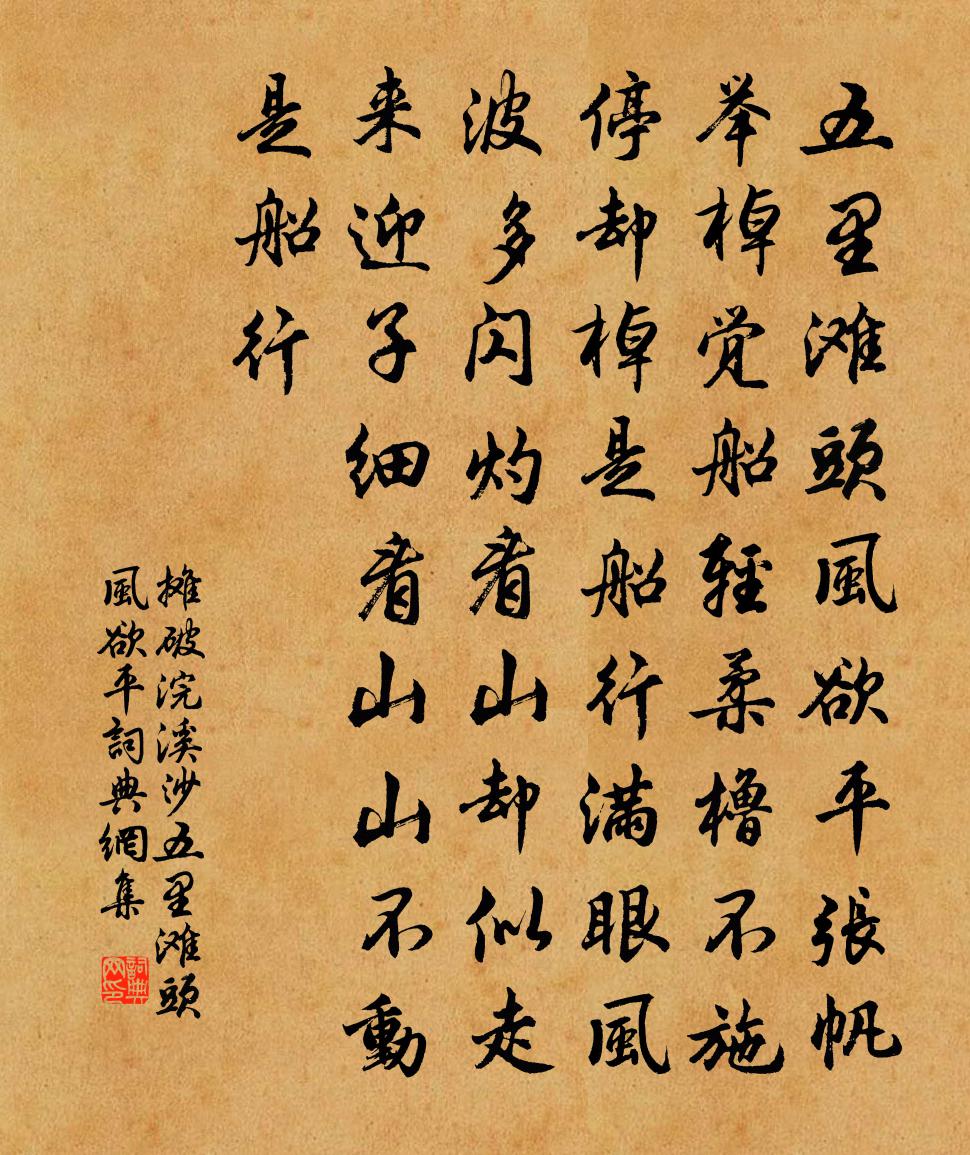 五里滩頭風欲平張帆
举棹觉船輕柔櫓不施
停却棹是船行滿眼風
波多闪灼看山却似走
来迎子细看山山不動
是船行
摊破浣溪沙五里滩頭
風欲平詞典網集
詞典网印